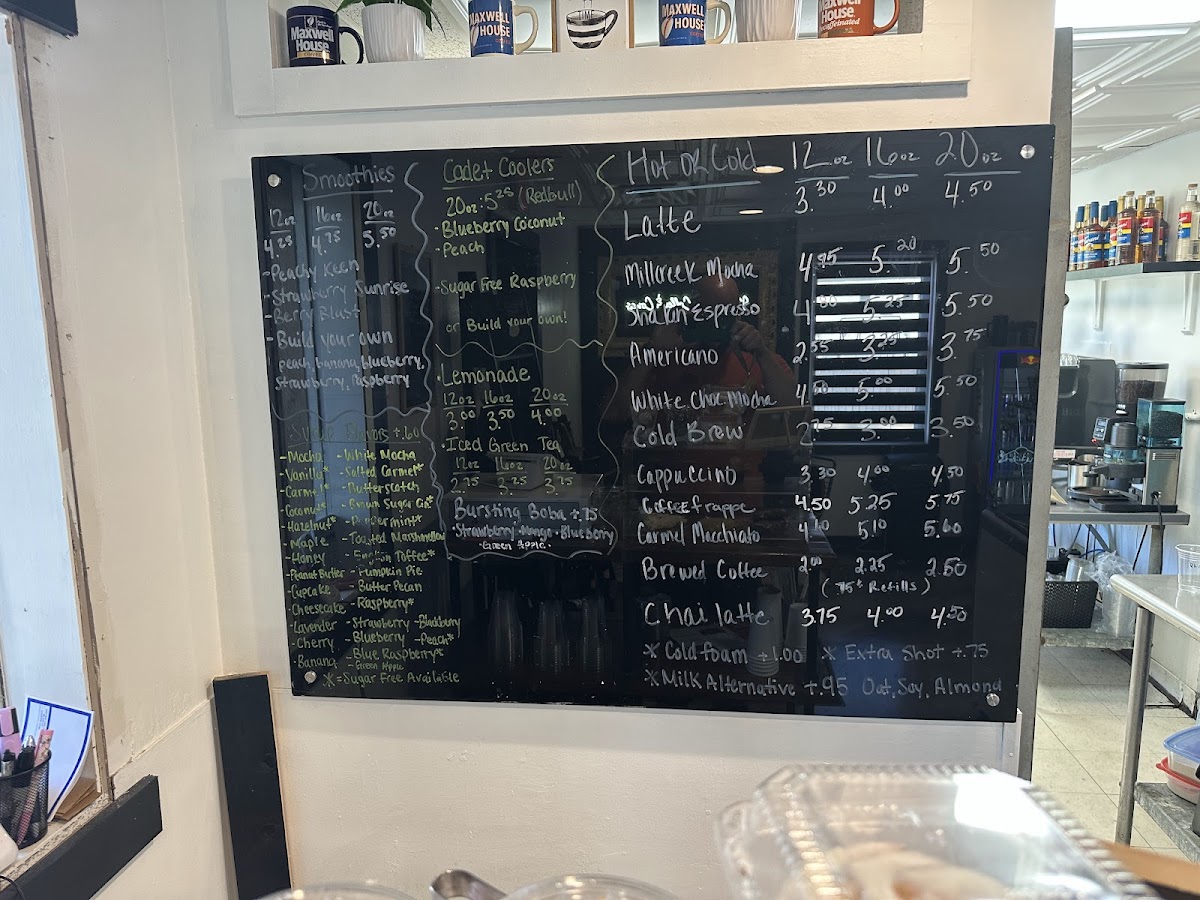 Maxwell House
MAXWELL HOUSE
MAXWELL HOUSE
Maxwell House
Smoothies
12oz 16oz 20oz
4.25 4.75 5.50
-Peachy Keen
-Strawberry Sunrise
-Berry Blast
-Build your own
peach, banana, blueberry,
strawberry, raspberry
Flavors +.60
-Mocha -White Mocha
-Vanilla* -Salted Carmel*
-Carmel* -Butterscotch
-Coconut* -Brown Sugar Cin*
-Hazelnut* -Peppermint*
-Maple -Toasted Marshmallow
-Honey -English Toffee*
-Peanut Butter -Pumpkin Pie
-Cupcake -Butter Pecan
-Cheesecake -Raspberry*
-Lavender -Strawberry -Blackberry
-Cherry -Blueberry -Peach*
-Banana -Blue Raspberry*
-Green Apple
*=Sugar Free Available
Cadet Coolers
20oz·5.25 (Redbull)
·Blueberry Coconut
·Peach
·Sugar Free Raspberry
or Build your own!
·Lemonade
12oz 16oz 20oz
3.00 3.50 4.00
·Iced Green Tea
12oz 16oz 20oz
2.75 3.25 3.75
Bursting Boba +.75
·Strawberry·Mango·Blueberry
·Green Apple·
Hot or Cold 12oz 16oz 20oz
Latte 3.30 4.00 4.50
Millcreek Mocha 4.95 5.20 5.50
Shaken Espresso 5.25 5.50
Americano 2.55 3.25 3.75
White Choc. Mocha 5.00 5.50
Cold Brew 2.75 3.00 3.50
Cappuccino 3.30 4.00 4.50
Coffee frappe 4.50 5.25 5.75
Carmel Macchiato 5.10 5.60
Brewed Coffee 2.00 2.25 2.50
(.75¢ Refills)
Chai latte 3.75 4.00 4.50
* Cold foam +1.00 * Extra Shot +.75
* Milk Alternative +.95 Oat, Soy, Almond